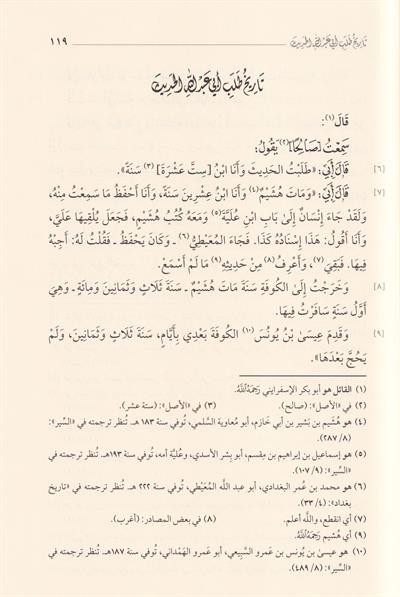 تَارِيخُ طَلَبِ أَبِي عَبْدِ اللهِ الحَدِيثَ ١١٩
تَارِيخُ طَلَبِ أَبِي عَبْدِ اللهِ الحَدِيثَ
قَالَ(١):
سَمِعْتُ [صَالِحًا](٢) يَقُولُ:
[٦] قَالَ أَبِي: «طَلَبْتُ الحَدِيثَ وَأَنَا ابْنُ [سِتَّ عَشْرَةَ](٣) سَنَةً».
[٧] قَالَ أَبِي: «وَمَاتَ هُشَيْمٌ(٤) وَأَنَا ابْنُ عِشْرِينَ سَنَةً، وَأَنَا أَحْفَظُ مَا سَمِعْتُ مِنْهُ،
وَلَقَدْ جَاءَ إِنْسَانٌ إِلَىٰ بَابِ ابْنِ عُلَيَّةَ(٥) وَمَعَهُ كُتُبُ هُشَيْمٍ، فَجَعَلَ يُلْقِيهَا عَلَيَّ،
وَأَنَا أَقُولُ: هَذَا إِسْنَادُهُ كَذَا. فَجَاءَ المُعَيْطِيُّ(٦) ـ وَكَانَ يَحْفَظُ ـ فَقُلْتُ لَهُ: أَجِبْهُ
فِيهَا. فَبَقِيَ(٧)، وَأَعْرِفُ(٨) مِنْ حَدِيثِهِ(٩) مَا لَمْ أَسْمَعْ.
[٨] وَخَرَجْتُ إِلَىٰ الكُوفَةِ سَنَةَ مَاتَ هُشَيْمٌ ـ سَنَةَ ثَلَاثٍ وَثَمَانِينَ وَمِائَةٍ ـ وَهِيَ
أَوَّلُ سَنَةٍ سَافَرْتُ فِيهَا.
[٩] وَقَدِمَ عِيسَىٰ بْنُ يُونُسَ(١٠) الكُوفَةَ بَعْدِي بِأَيَّامٍ، سَنَةَ ثَلَاثٍ وَثَمَانِينَ، وَلَمْ
يَحُجَّ بَعْدَهَا».
(١) القائل هو أبو بكر الإسفرايني رَحِمَهُ اللَّهُ.
(٢) في «الأصل»: (صالح). (٣) في «الأصل»: (ستة عشر).
(٤) هو هُشَيم بن بَشير بن أبي خازم، أبو معاوية السلمي، تُوفي سنة ١٨٣ هـ. تُنظر ترجمته في «السِّير»:
(٨/ ٢٨٧).
(٥) هو إسماعيل بن إبراهيم بن مِقسم، أبو بِشر الأسدي، وعُليَّة أمه، تُوفي سنة ١٩٣هـ. تُنظر ترجمته في
«السِّير»: (٩/ ١٠٧).
(٦) هو محمد بن عُمر البغدادي، أبو عبد الله المُعَيْطي، تُوفي سنة ٢٢٢ هـ. تُنظر ترجمته في «تاريخ
بغداد»: (٤/ ٣٣).
(٧) أي انقطع، والله أعلم. (٨) في بعض المصادر: (أغرب).
(٩) أي هُشيم رَحِمَهُ اللَّهُ.
(١٠) هو عيسىٰ بن يُونس بن عَمرو السَّبيعي، أبو عَمرو الهَمْداني، تُوفي سنة ١٨٧هـ. تُنظر ترجمته في
«السِّير»: (٨/ ٤٨٩).